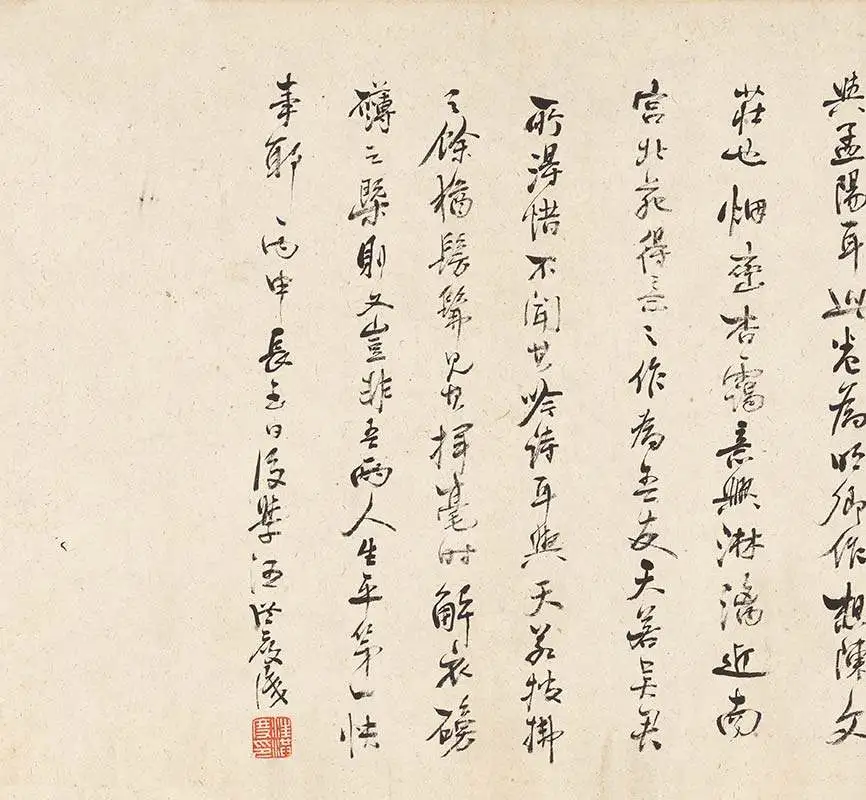 與孟陽耳此卷為明卿作想陳文
莊也烟巒杏靄意興淋漓近南
宮北苑得意之作為吾友天若吳君
所得惜不聞其吟詩耳與天若披拂
之餘猶髣髴見其揮毫時解衣磅
礴之槩則又豈非吾兩人生平第一快
事耶丙申長至日後學汪洪度識